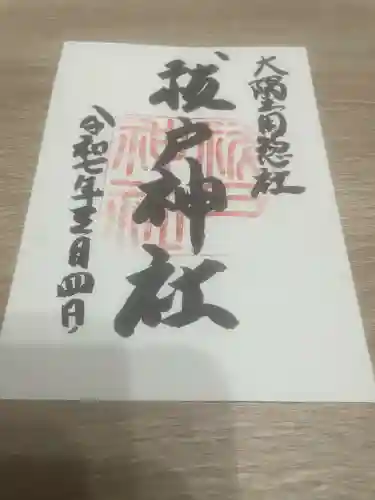 大隅国惣社
祓戸神社
令和七年三月四日